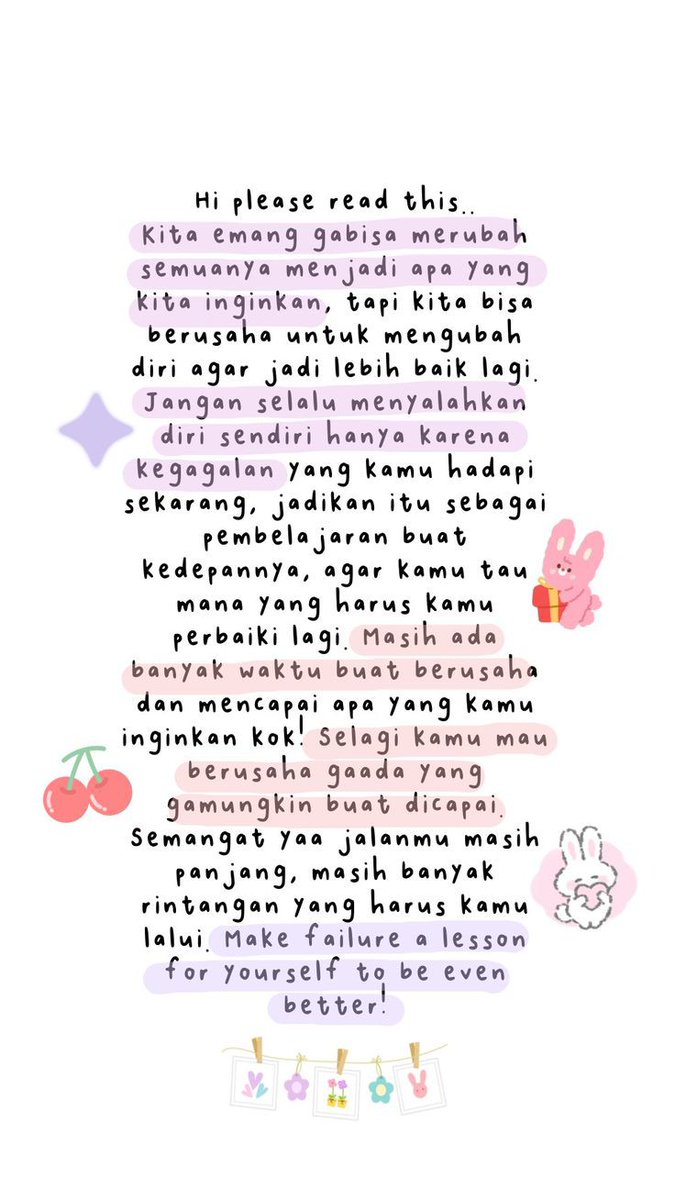 Hi please read this..
Kita emang gabisa merubah
semuanya menjadi apa yang
kita inginkan, tapi kita bisa
berusaha untuk mengubah
diri agar jadi lebih baik lagi.
Jangan selalu menyalahkan
diri sendiri hanya karena
kegagalan yang kamu hadapi
sekarang, jadikan itu sebagai
pembelajaran buat
kedepannya, agar kamu tau
mana yang harus kamu
perbaiki lagi. Masih ada
banyak waktu buat berusaha
dan mencapai apa yang kamu
inginkan kok! Selagi kamu mau
berusaha gaada yang
gamungkin buat dicapai.
Semangat yaa jalanmu masih
panjang, masih banyak
rintangan yang harus kamu
lalui. Make failure a lesson
for yourself to be even
better!